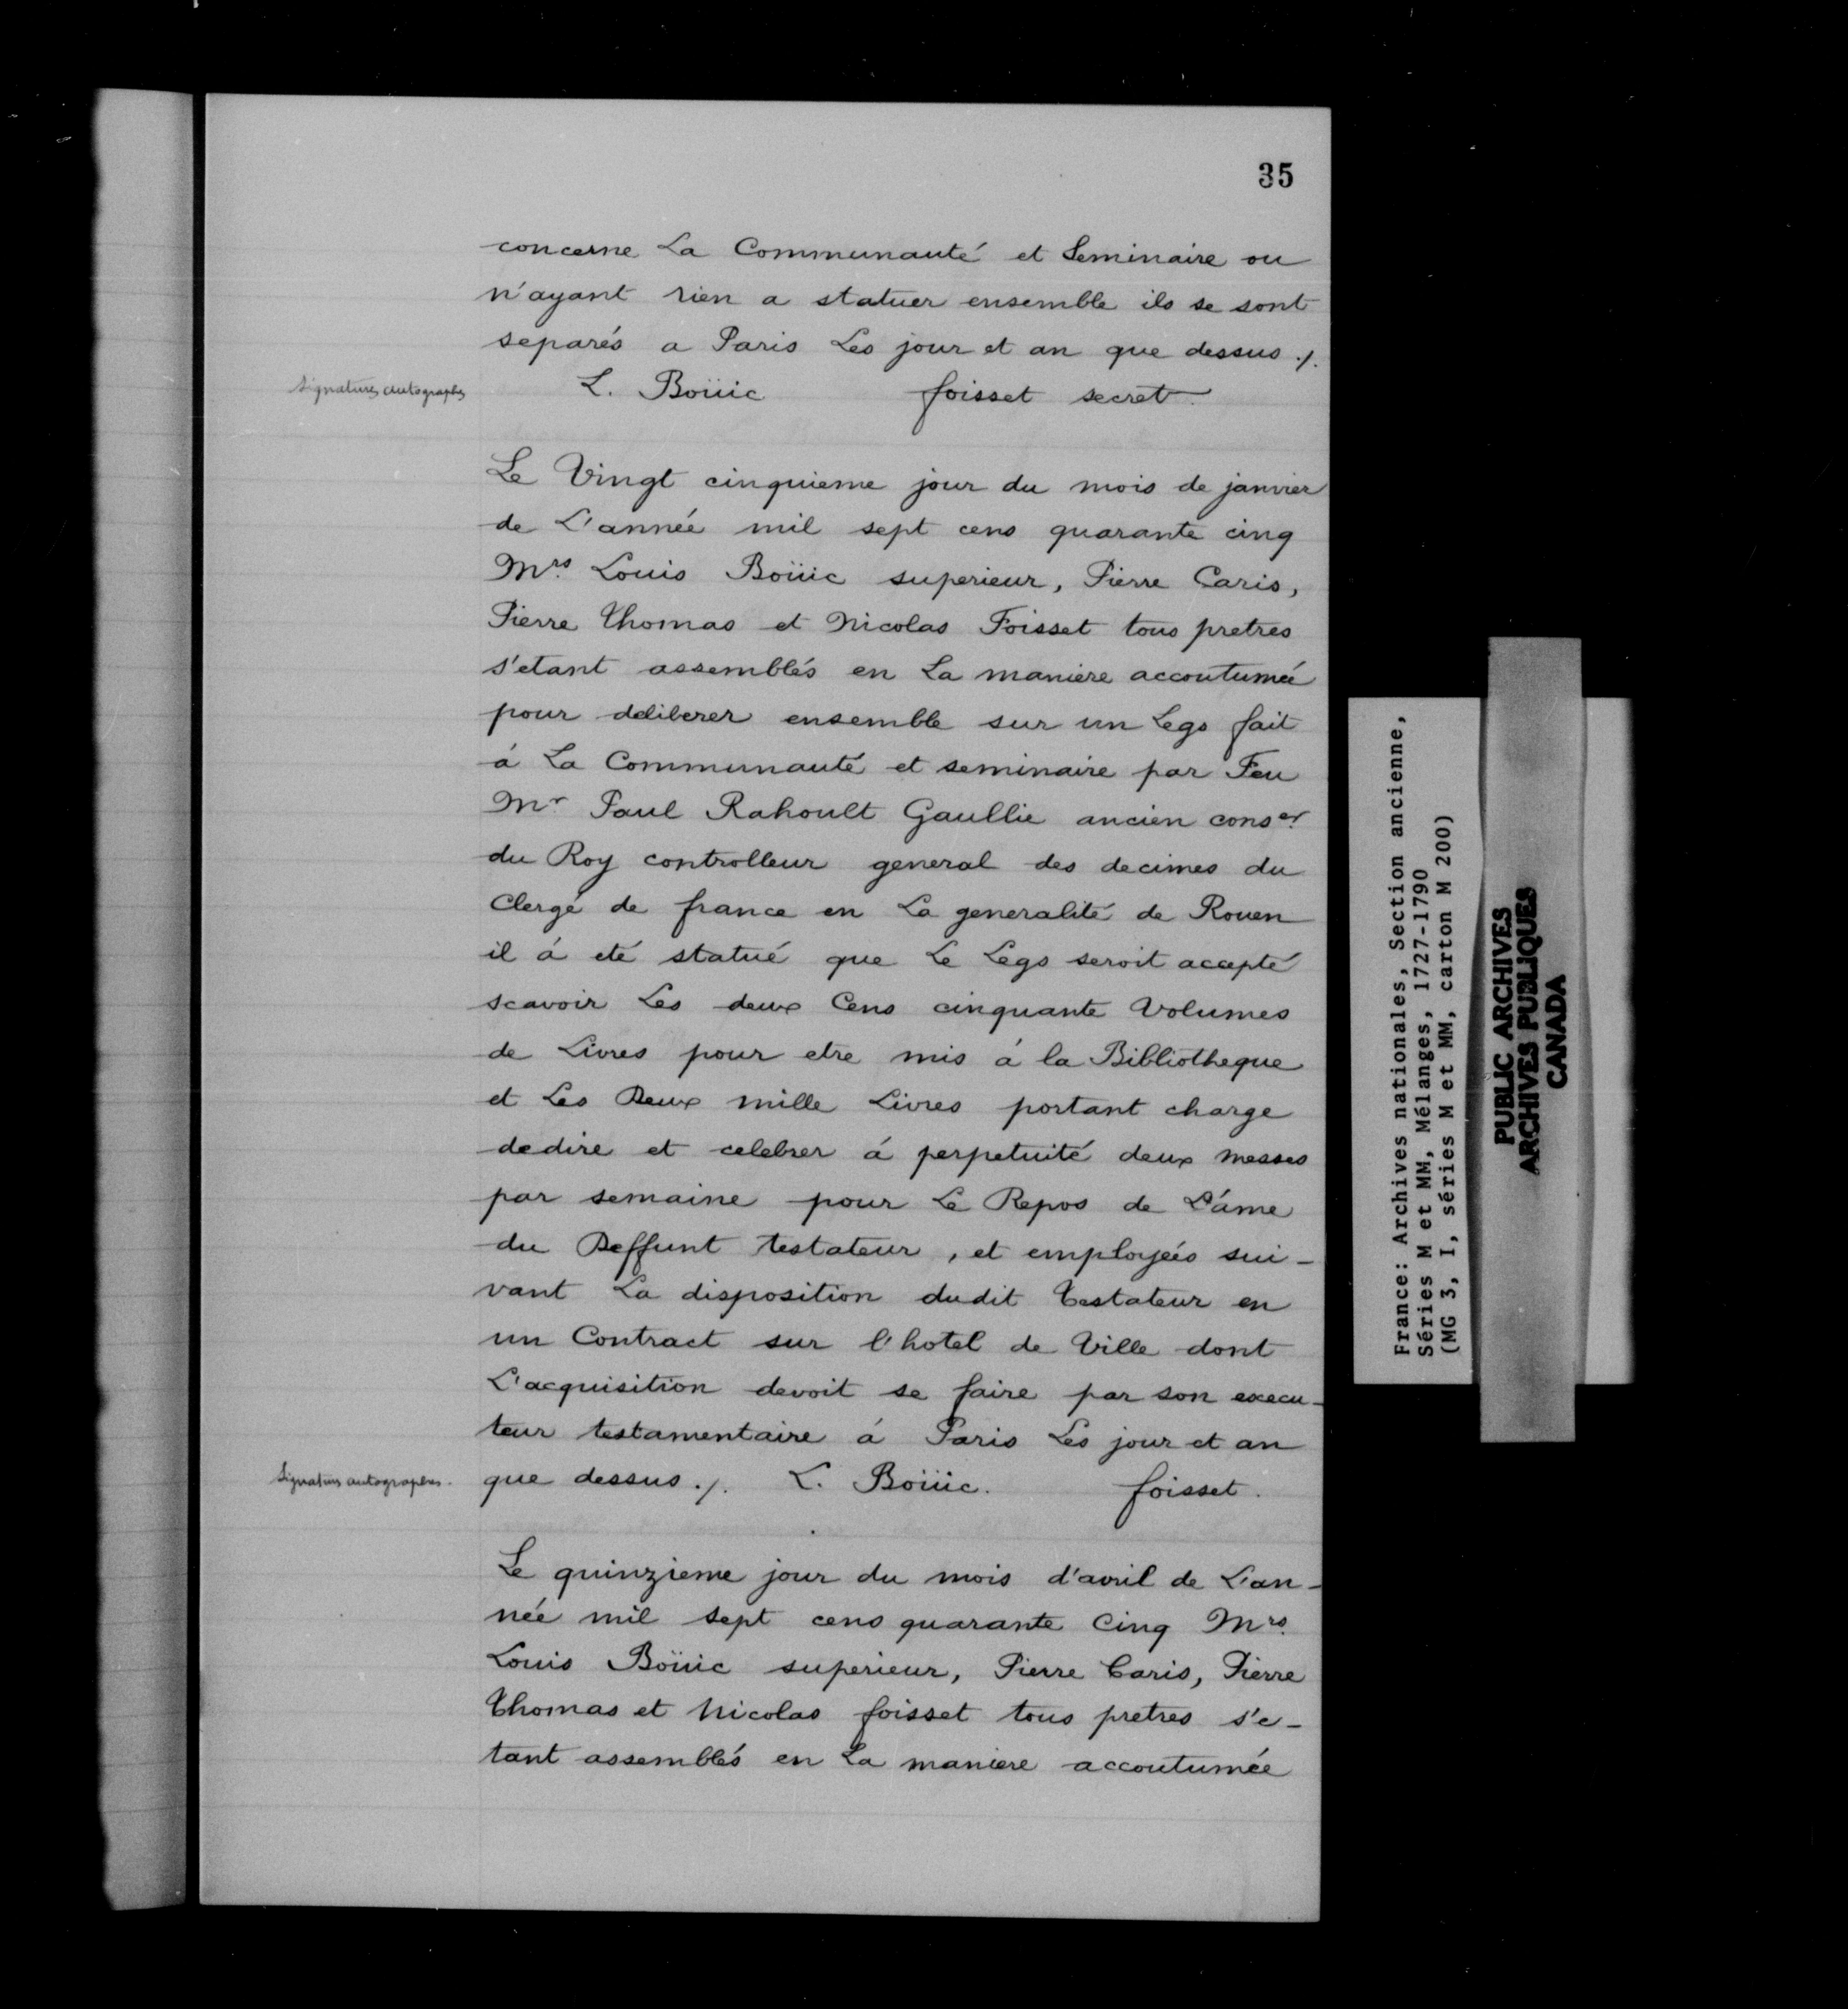 35
concerne La Communauté et Seminaire ou
n'ayant rien a statuer ensemble ils se sont
separés a Paris Les jour et an que dessus ./.
Signatures autographes
L. Boüic foisset secret.
Le Vingt cinquieme jour du mois de janvier
de L'année mil sept cens quarante cinq
Mrs. Louis Boüic superieur, Pierre Caris,
Pierre Thomas et Nicolas Foisset tous pretres
s'etant assemblés en La maniere accoutumée
pour deliberer ensemble sur un Legs fait
á La Communauté et seminaire par Feu
Mr Paul Rahoult Gaullie ancien conser.
du Roy controlleur general des decimes du
Clergé de france en La generalité de Rouen
il á eté statué que Le Legs seroit accepté
scavoir Les deux Cens cinquante Volumes
de Livres pour etre mis á la Bibliotheque
et Les Deux mille Livres portant charge
de dire et celebrer á perpetuité deux messes
par semaine pour Le Repos de L'áme
du Deffunt testateur, et employées sui-
vant La disposition dudit Testateur en
un Contract sur l'hotel de Ville dont
L'acquisition devoit se faire par son execu-
teur testamentaire á Paris Les jour et an
Signatures autographes.
que dessus ./. L. Boüic. foisset.
Le quinzieme jour du mois d'avril de L'an-
née mil sept cens quarante Cinq Mrs.
Louis Boüic superieur, Pierre Caris, Pierre
Thomas et Nicolas foisset tous pretres s'e-
tant assemblés en La maniere accoutumée
France: Archives nationales, Section ancienne,
Séries M et MM, Mélanges, 1727-1790
(MG 3, I, séries M et MM, carton M 200)
PUBLIC ARCHIVES
ARCHIVES PUBLIQUES
CANADA